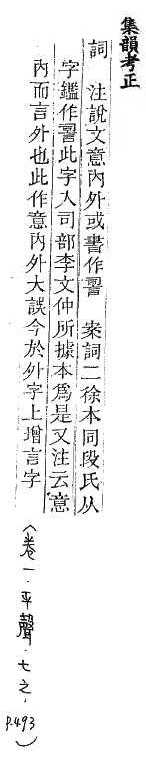 集韻考正
詞　注說文意內外或書作䛐　案詞二徐本同段氏从
字鑑作䛐此字入司部李文仲所據本爲是又注云意
內而言外也此作意內外大誤今於外字上增言字
（卷一．平聲．七之．P.493）